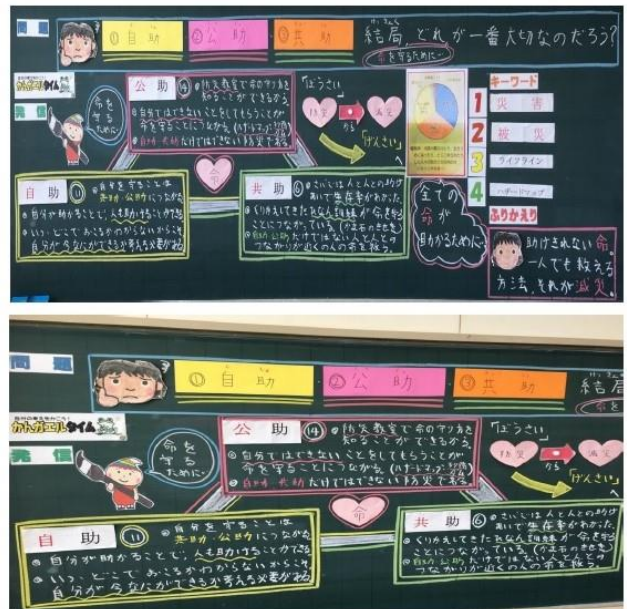 問題
①自助
②公助
③共助
結局、どれが一番大切なのだろう?
命を守るために…
かんがエルタイム
発信
命を守るために…
公助 ⑭
防災教室で命の守り方を
知ることができるから。
自分ではできないことをしてもらうことが
命を守ることにつながる。(ハザードマップ・
自助 共助だけではできない防災である
「ぼうさい」
防災
から
減災
「げんさい」
命
自助 ⑪
自分を守ることは
共助・公助につながる
自分が助かることで、人も助けることができる
いつ・どこでおこるかわからないからこそ
自分が今なにができるか考える必要がある
共助 ⑥
さいごは人と人との助け
あいで生存率がわかった。
くりかえしてきたひなん訓練が命を守る
ことにつながっている。(釜石のきせき)
自助 公助だけではない人と人との
つながりが近くの人の命を救う。
全ての
命が
助かるために…
キーワード
1 災害
2 被災
3 ライフライン
4 ハザードマップ
ふりかえり
助けきれない命。
一人でも救える
方法、それが減災。
問題
①自助
②公助
③共助
結局
命を
かんがエルタイム
発信
命を
守る
ために…
公助 ⑭
防災教室で命の守り方を
知ることができるから。
自分ではできないことをしてもらうことが
命を守ることにつながる。(ハザードマップ・
自助 共助だけではできない防災である
「ぼうさい」
防災
から
減災
「げんさい」
命
自助 ⑪
自分を守ることは
共助・公助につながる
自分が助かることで、人も助けることができる
いつ・どこでおこるかわからないからこそ
自分が今なにができるか考える必要がある
共助 ⑥
さいごは人と人との助け
あいで生存率がわかった。
くりかえしてきたひなん訓練が命を守る
ことにつながっている。(釜石のきせき)
自助 公助だけではない人と人との
つながりが近くの人の命を救う。